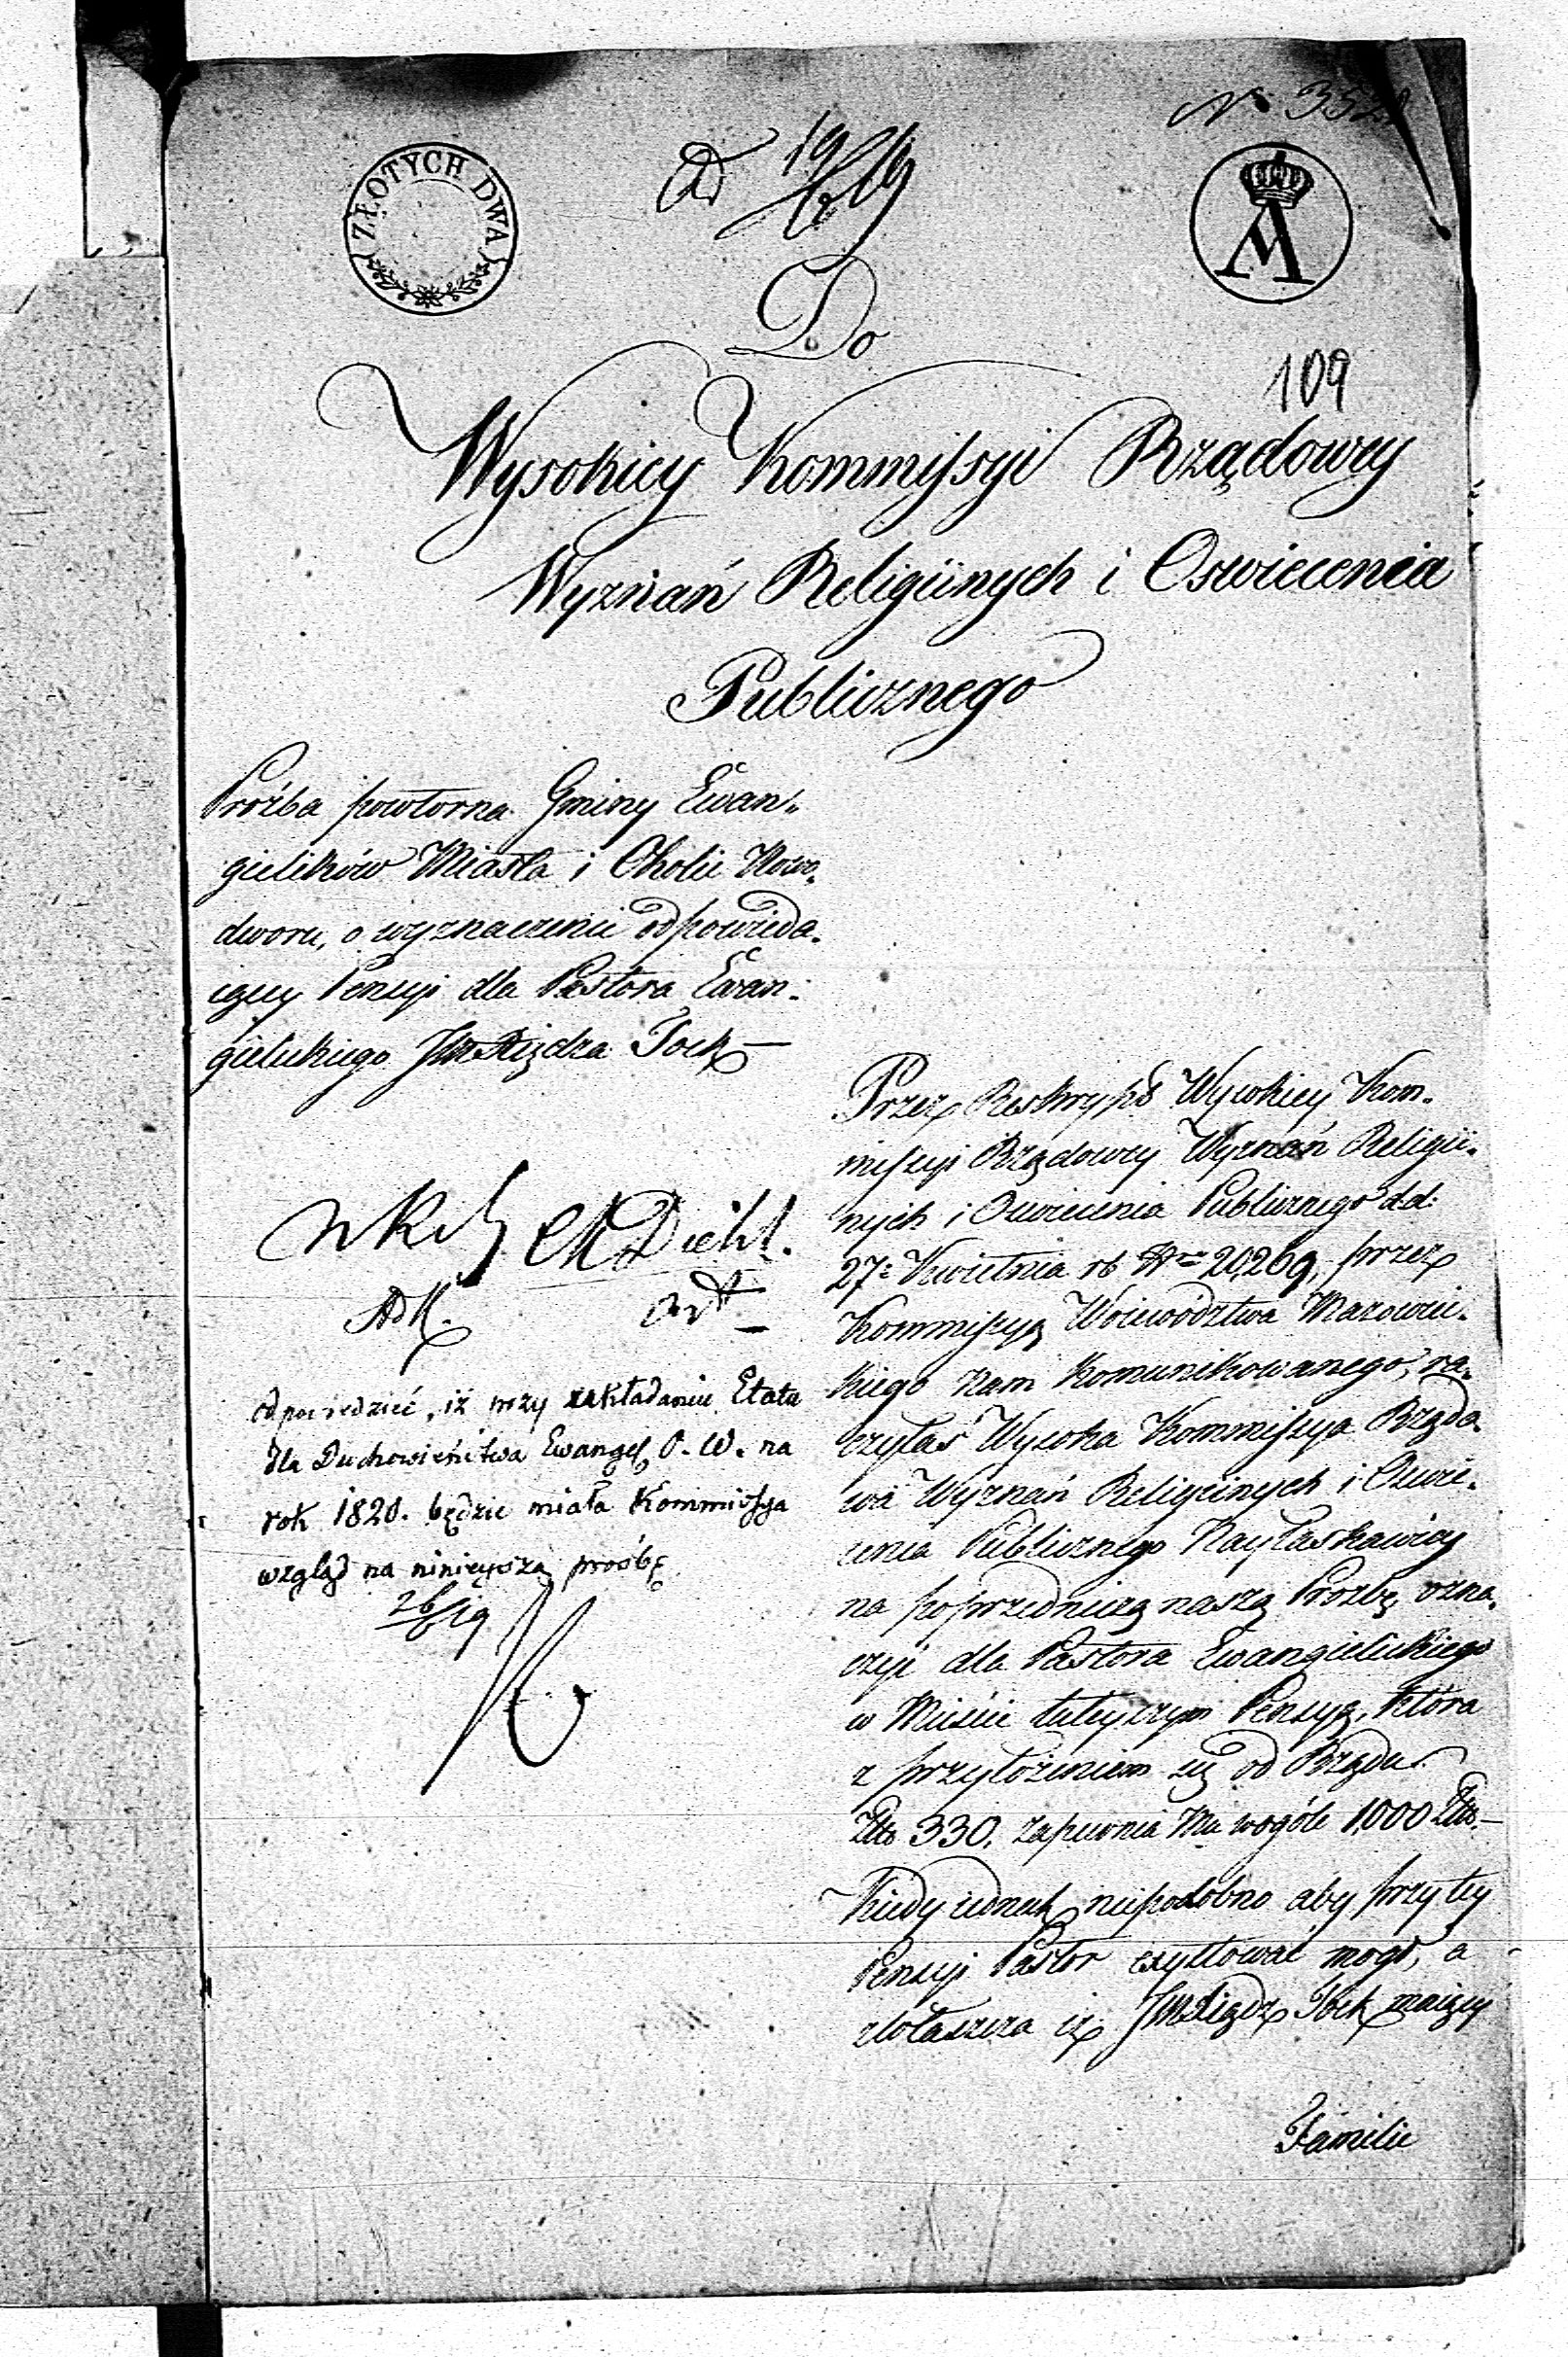 N 352
ZŁOTYCH DWA
19
Do
109
Wysokiey Kommissyi Rządowey
Wyznań Religiinych i Oswiecenia
Publicznego
Proźba powtorna Gminy Ewan„
gielików Miasta i Okolic Nowo„
dworu, o wyznaczenie odpowieda„
iącey Pensyi dla Pastora Ewan:
gielickiego JM Xiędza Tock —
Diehl.
odpowiedzieć, iż przy układaniu Etatu
dla Duchowieństwa Ewangel O. W. na
rok 1820. będzie miała Kommissya
wzgląd na ninieyszą prośbę
26/6 19
Przez Reskrypt Wysokiey Kom„
missyi Rządowey Wyznań Religii„
nych i Oswiecenia Publicznego d.d:
27: Kwietnia rb Nro 20,269, przez
Kommissyą Woiewództwa Mazowie„
ckiego nam komunikowanego, ra„
czyłaś Wysoka Kommissya Rządo„
wa Wyznań Religiinych i Oswie„
cenia Publicznego Nayłaskawiey
na poprzedniczą naszą Prozbę, ozna„
czyć dla Pastora Ewangielickiego
w Mieście tuteyszym Pensyą, która
z przyłożeniem się od Rządu
Złto 330. zapewnia Mu wogóle 1,000 Złto. —
Kiedy iednak niepodobno aby przy tey
Pensyi Pastor exystować mógł, a
zwłaszcza iż JM Xiądz Tock maiący
Familie